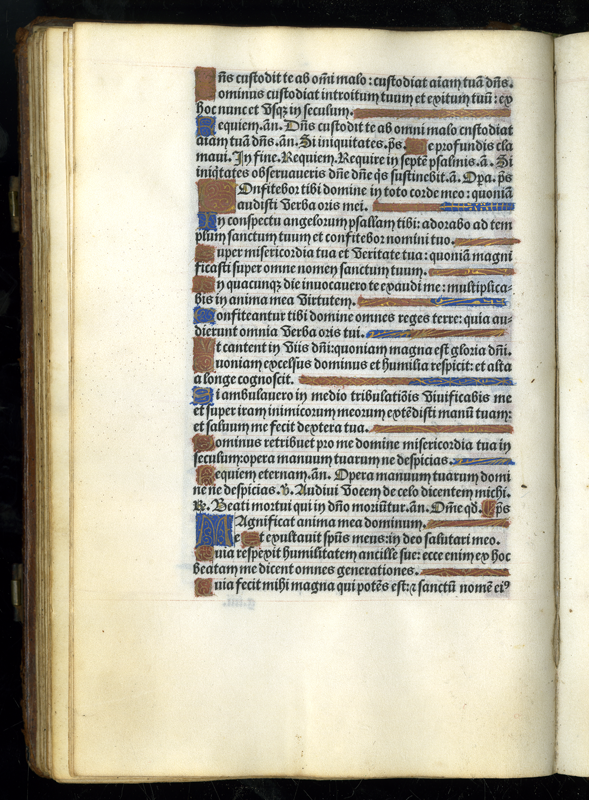 Dñs custodit te ab om̃i malo : custodiat aĩam tuã dñs.
Dominus custodiat introitum tuum et exitum tuũ : ex
hoc nunc et Vsq̃ in seculum.
Requiem. añ. Dñs custodit te ab omni malo custodiat
aĩam tuã dñs. añ. Si iniquitates. ps. De profundis cla
maui. In fine. Requiem. Require in septẽ psalmis. ã. Si
iniq̃tates obseruaueris dñe dñe q̃s sustinebit. ã. Opa. ps
Confitebor tibi domine in toto corde meo : quoniã
audisti Verba oris mei.
In conspectu angelorum psallam tibi : adorabo ad tem
plum sanctum tuum et confitebor nomini tuo.
Super misericordia tua et Veritate tua : quoniã magni
ficasti super omne nomen sanctum tuum.
In quacunq̃ die inuocauero te exaudi me : multiplica-
bis in anima mea Virtutem.
Confiteantur tibi domine omnes reges terre : quia au-
dierunt omnia Verba oris tui.
Et cantent in Viis dñi : quoniam magna est gloria dñi.
Quoniam excelsus dominus et humilia respicit : et alta
a longe cognoscit.
Si ambulauero in medio tribulatiõis Viuificabis me
et super iram inimicorum meorum extẽdisti manũ tuam :
et saluum me fecit dextera tua.
Dominus retribuet pro me domine misericordia tua in
seculum : opera manuum tuarum ne despicias.
Requiem eternam. añ. Opera manuum tuarum domi
ne ne despicias. ℣. Audiui Vocem de celo dicentem michi.
℟. Beati mortui qui in dño moriũtur. añ. Om̃e qd. ps
MAgnificat anima mea dominum.
Et exultauit sp̃us meus : in deo salutari meo.
Quia respexit humilitatem ancille sue : ecce enim ex hoc
beatam me dicent omnes generationes.
Quia fecit mihi magna qui potẽs est : ⁊ sanctũ nomẽ eiꝰ